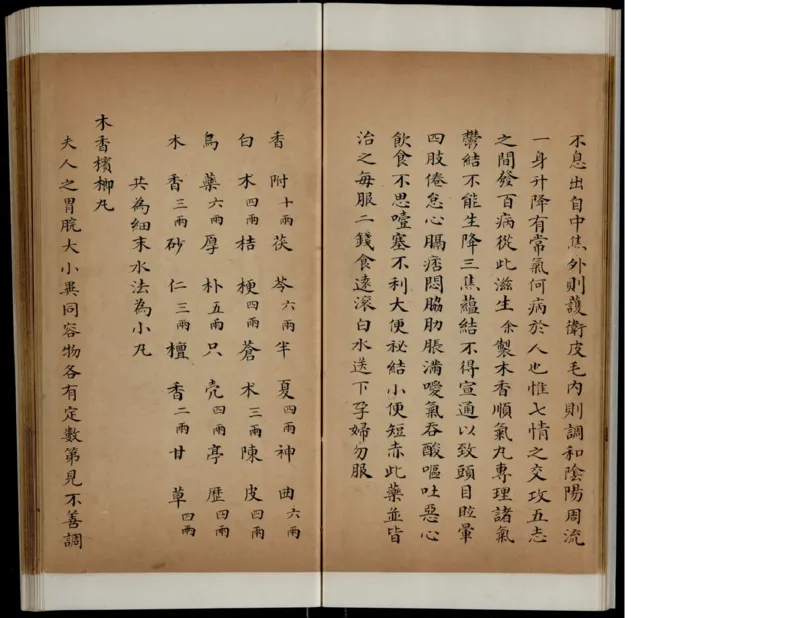 不息出自中焦外則護衛皮毛内則調和陰陽周流
一身升降有常氣何病於人也惟七情之交攻五志
之間發百病從此滋生余製木香順氣丸專理諸氣
鬱結不能生降三焦蘊結不得宣通以致頭目眩暈
四肢倦怠心膈痞悶脇肋脹滿噯氣吞酸嘔吐惡心
飲食不思噎塞不利大便秘結小便短赤此藥並皆
治之每服二錢食遠滾白水送下孕婦勿服
香附十兩茯苓六兩半夏四兩神曲六兩
白朮四兩桔梗四兩蒼朮三兩陳皮四兩
烏藥六兩厚朴五兩只壳四兩亭歷四兩
木香三兩砂仁三兩檀香二兩甘草四兩
共為細末水法為小丸
木香檳榔丸
夫人之胃脘大小異同容物各有定數第見不善調